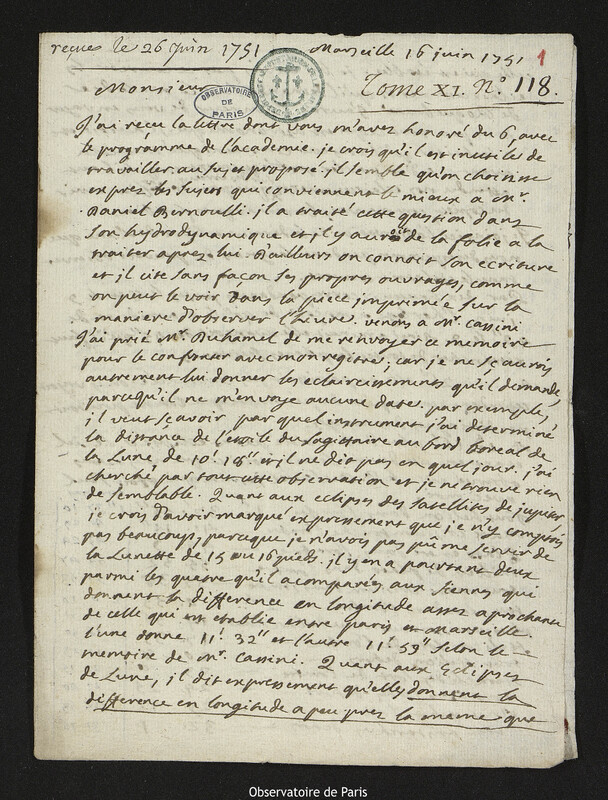 reçue le 26 Juin 1751
Marseille 16 juin 1751
1
Tome XI. N.° 118.
Monsieur
OBSERVATOIRE DE PARIS
J'ai reçu la lettre dont vous m'avez honoré du 6, avec
le programme de l'academie. je crois qu'il est inutile de
travailler au sujet proposé. il semble qu'on choisisse
exprez les sujets qui conviennent le mieux a Mr.
Daniel Bernoulli. il a traité cette question dans
son hydrodynamique et il y auroit de la folie a la
traiter aprez lui. D'ailleurs on connoit son ecriture
et il cite sans façon ses propres ouvrages, comme
on peut le voir dans la piece imprimée sur la
maniere d'observer l'heure. venons a Mr. Cassini
J'ai prié Mr. Duhamel de me renvoyer ce memoire
pour le confronter avec mon registre; car je ne sçaurois
autrement lui donner les eclaircissements qu'il demande,
parcequ'il ne m'envoye aucune date. par exemple,
il veut sçavoir par quel instrument j'ai determiné
la distance de l'etoile du Sagittaire au bord boreal de
la Lune de 10'. 18" et il ne dit pas en quel jour. j'ai
cherché par tout cette observation et je ne trouve rien
de semblable. Quant aux eclipses des satellites de jupiter
je crois d'avoir marqué expressement que je n'y comptois
pas beaucoup, parceque je n'avois pas pû me servir de
la Lunette de 15 ou 16 pieds. il y en a pourtant deux
parmi les quatre qu'il a comparées aux siennes qui
donnent la difference en longitude assez aprochante
de celle qui est etablie entre paris et Marseille.
l'une donne 11'. 32" et l'autre 11'. 59" selon le
memoire de Mr. Cassini. Quant aux Eclipses
de Lune, il dit expressement qu'elles donnent la
difference en longitude a peu prez la meme que
Observatoire de Paris